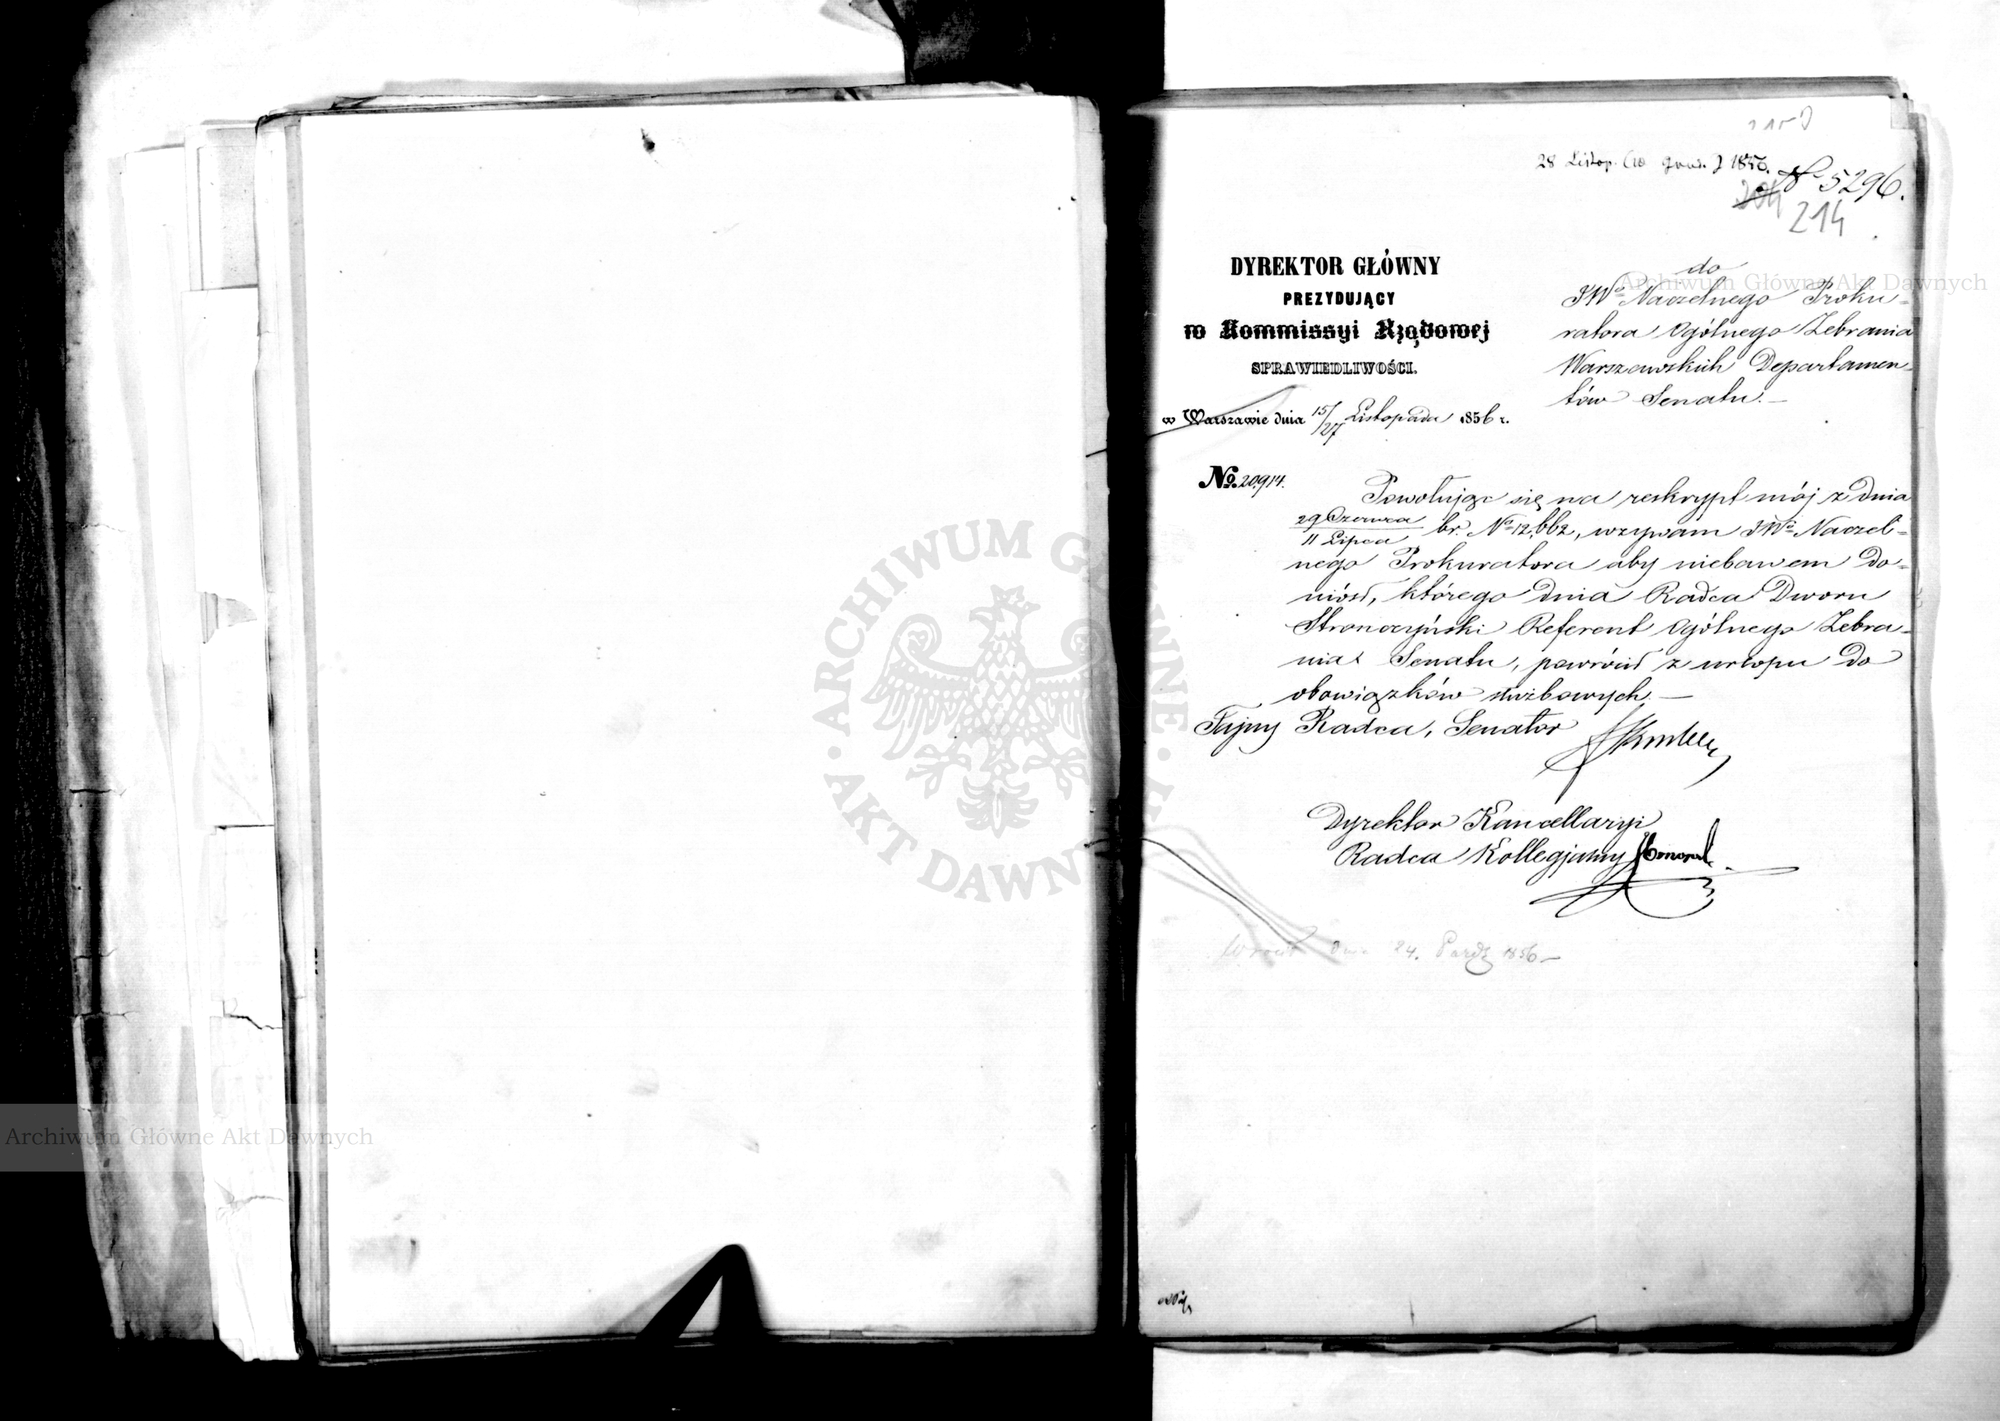 28 Listop. 1856.
№ 5296.
204
214
DYREKTOR GŁÓWNY
PREZYDUJĄCY
w Kommissyi Rządowej
SPRAWIEDLIWOŚCI.
w Warszawie dnia 15/27 Listopada 1856 r.
do
JWo Naczelnego Proku-
ratora Ogólnego Zebrania
Warszawskich Departamen-
tów Senatu.—
No. 20,914.
Powołując się na reskrypt mój z dnia
29 Czerwca / 11 Lipca br. No 12,662, wzywam JWo Naczel-
nego Prokuratora aby niebawem do-
niósł, którego dnia Radca Dworu
Stronczyński Referent Ogólnego Zebra-
nia Senatu, powrócił z urlopu do
obowiązków służbowych.—
Tajny Radca, Senator
Dyrektor Kancellaryi
Radca Kollegjalny
dnia 24. Paźdz 1856 —
ARCHIWUM GŁÓWNE AKT DAWNYCH
Archiwum Główne Akt Dawnych
Archiwum Główne Akt Dawnych